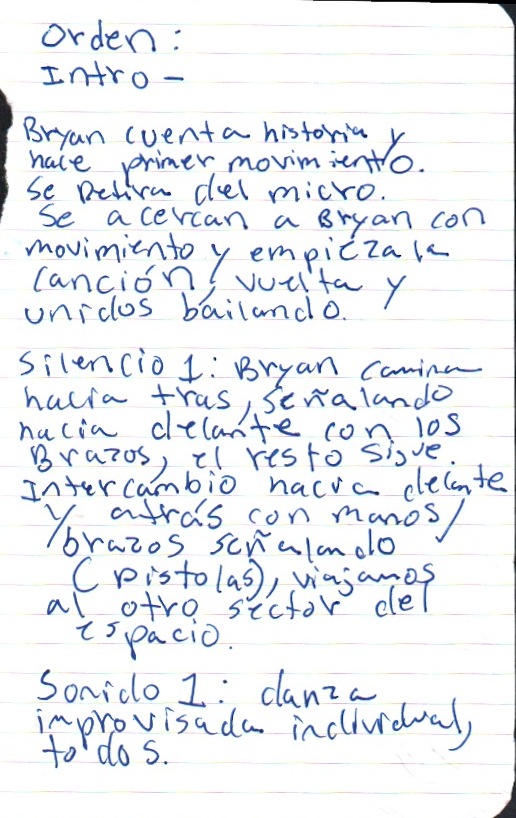 Orden:
Intro -
Bryan cuenta historia y
hace primer movimiento.
Se retira del micro.
Se acercan a Bryan con
movimiento y empieza la
canción, vuelta y
unidos bailando.
Silencio 1: Bryan camina
hacia tras, señalando
hacia delante con los
Brazos, el resto sigue.
Intercambio hacia delante
y atrás con manos/
brazos señalando
(pistolas), viajamos
al otro sector del
espacio.
Sonido 1: danza
improvisada individual,
todos.